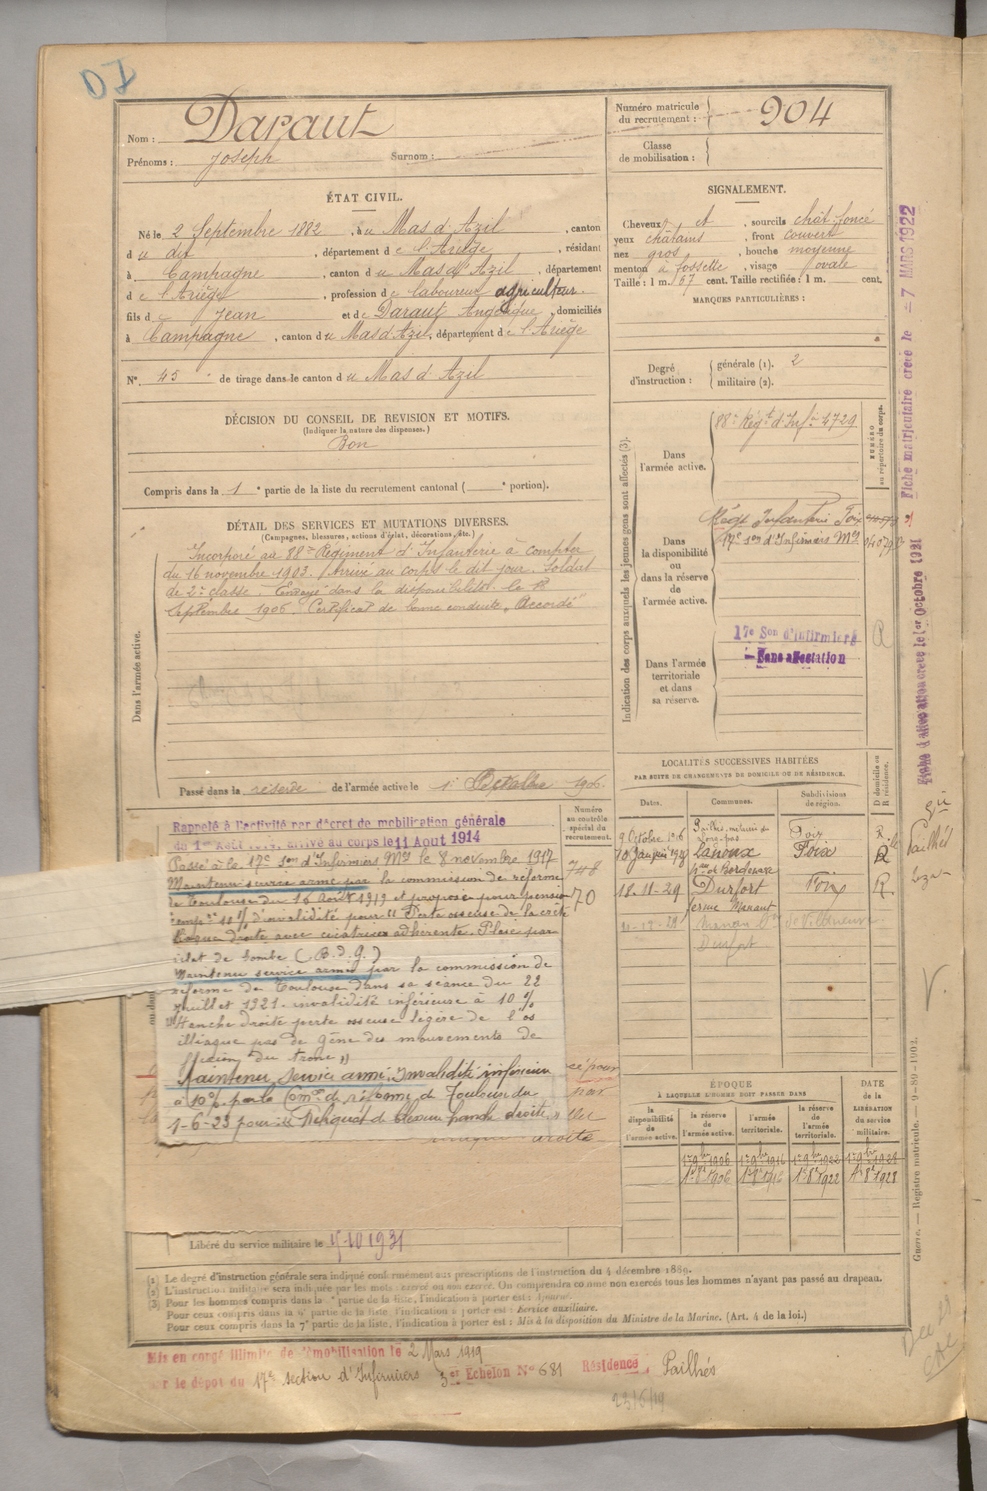 DI
Nom : Daraut
Prénoms : Joseph Surnom :
Numéro matricule du recrutement : 904
Classe de mobilisation :
ÉTAT CIVIL.
Né le 2 Septembre 1882, à u Mas d'Azil, canton
d u dit, département d e l'Ariège, résidant
à Campagne, canton d u Mas d'Azil, département
d e l'Ariège, profession d e laboureur agriculteur.
fils d e Jean et d e Daraut Angélique, domiciliés
à Campagne, canton d u Mas d'Azil, département d e l'Ariège
N° 45 de tirage dans le canton d u Mas d'Azil
DÉCISION DU CONSEIL DE REVISION ET MOTIFS.
(Indiquer la nature des dispenses.)
Bon
Compris dans la 1e partie de la liste du recrutement cantonal ( e portion).
SIGNALEMENT.
Cheveux et, sourcils chât. foncé
yeux châtains, front couvert
nez gros, bouche moyenne
menton à fossette, visage ovale
Taille : 1 m. 67 cent. Taille rectifiée : 1 m. cent.
MARQUES PARTICULIÈRES :
Degré d'instruction : générale (1). 2
militaire (2).
DÉTAIL DES SERVICES ET MUTATIONS DIVERSES.
(Campagnes, blessures, actions d'éclat, décorations, etc.)
Dans l'armée active.
Incorporé au 88e Régiment d'Infanterie à compter
du 16 novembre 1903. Arrivé au corps le dit jour. Soldat
de 2e classe. Envoyé dans la disponibilité le
Septembre 1906. Certificat de bonne conduite "Accordé"
Passé dans la réserve de l'armée active le 1er Octobre 1906.
Indication des corps auxquels les jeunes gens sont affectés (3).
NUMÉRO au répertoire du corps.
Dans l'armée active.
88e Régt d'Infie 4729
Dans la disponibilité ou dans la réserve de l'armée active.
Régt Infanterie Foix
17e son d'Infirmiers Mres
Dans l'armée territoriale et dans sa réserve.
17e Son d'Infirmiers
Sans affectation
Fiche matriculaire créée le 7 MARS 1922
Fiche d'affectation créée le 1er Octobre 1921
LOCALITÉS SUCCESSIVES HABITÉES
PAR SUITE DE CHANGEMENTS DE DOMICILE OU DE RÉSIDENCE.
Dates. Communes. Subdivisions de région. D domicile ou R résidence.
Pailhès Foix R
Lanoux Foix R
18-11-29 Durfort Foix R.
Numéro au contrôle spécial du recrutement.
748
70
Rappelé à l'activité par décret de mobilisation générale
du 1er Août 1914, arrivé au corps le 11 Aout 1914
Passé à la 17e son d'Infirmiers Mres le 8 novembre 1917
Maintenu service armé par la commission de réforme
de Toulouse du 16 Août 1919 et proposé pour pension
temp. 10 % d'invalidité pour "Perte osseuse de la crête
iliaque droite avec cicatrice adhérente. Plaie par
éclat de bombe (B.d.G.)
Maintenu service armé par la commission de
réforme de Toulouse dans sa séance du 22
juillet 1921. invalidité inférieure à 10 %
"Hanche droite perte osseuse légère de l'os
iliaque pas de gêne des mouvements de
flexion du tronc"
Maintenu service armé, Invalidité inférieure
à 10 % par la Comon de réforme de Toulouse du
1-6-23 pour : Reliquat de blessure hanche droite
droite
ÉPOQUE
À LAQUELLE L'HOMME DOIT PASSER DANS
la disponibilité de l'armée active. la réserve de l'armée active. l'armée territoriale. la réserve de l'armée territoriale. DATE de la LIBÉRATION du service militaire.
1er 8bre 1906 1er 8bre 1916 1er 8bre 1922 1er 8bre 1928
Libéré du service militaire le 15-10 1931
(1) Le degré d'instruction générale sera indiqué conformément aux prescriptions de l'instruction du 4 décembre 1889.
(2) L'instruction militaire sera indiquée par les mots : exercé ou non exercé. On comprendra comme non exercés tous les hommes n'ayant pas passé au drapeau.
(3) Pour les hommes compris dans la e partie de la liste, l'indication à porter est : Ajourné.
Pour ceux compris dans la e partie de la liste, l'indication à porter est : Service auxiliaire.
Pour ceux compris dans la 7e partie de la liste, l'indication à porter est : Mis à la disposition du Ministre de la Marine. (Art. 4 de la loi.)
Guerre. — Registre matricule. — 9-89-1902.
Mis en congé illimité de démobilisation le 2 Mars 1919
par le dépôt du 17e section d'Infirmiers 3e Echelon N° 681 Résidence : Pailhès